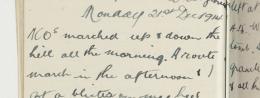 Monday 21st Dec 1914
NCOs marched up & down the
hill all the morning. A route
march in the afternoon & I
got a blister on my heel
left at